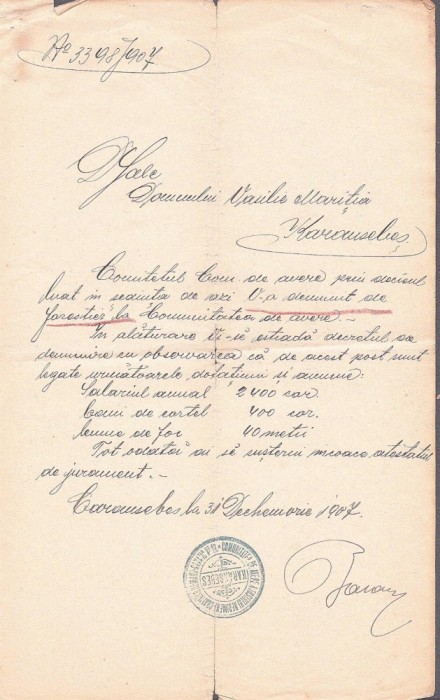 No 3398/907
DSale
Domnului Vasilie Mariția
Karansebeș
Comitetul Com. de avere prin decisul
luat in sedința de azi V-a denumit de
forestier la Comunitatea de avere. –
In alăturare Ți-se estradă decretul de
denumire cu observarea că de acest post sunt
legate următoarele dotațiuni și anume:
Salariul anual 2400 cor.
Bani de cortel 400 cor.
lemne de foc 40 metri
Tot odată ai să susterni incoace atestatul
de jurament. –
Caransebeș la 31 Dechemvrie 1907.
KARANSEBES